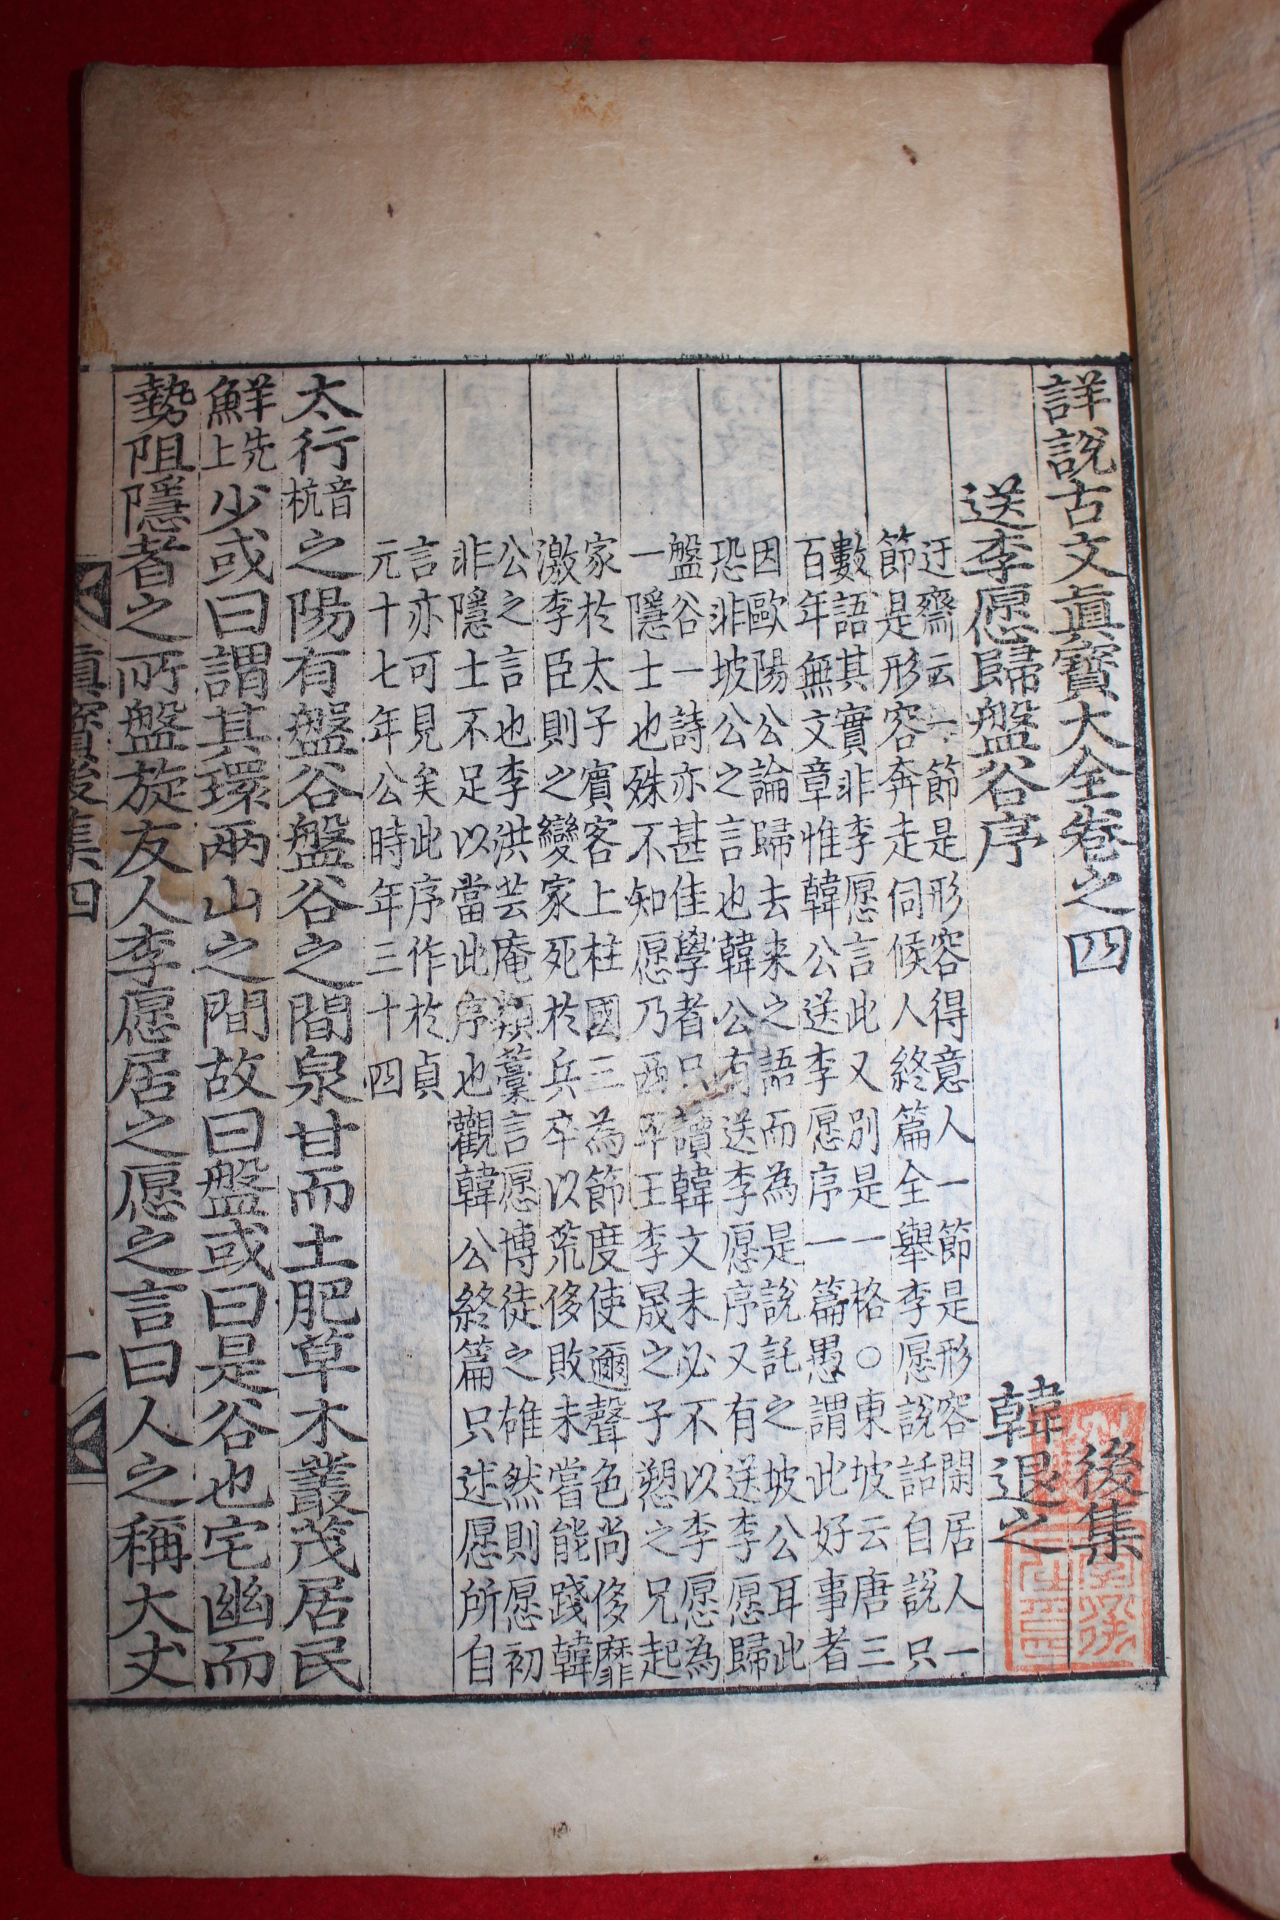 詳說古文眞寶大全卷之四 後集
送李愿歸盤谷序 韓退之
迂齋云一節是形容得意人一節是形容閒居人一
節是形容奔走伺候人終篇全舉李愿說話自說只
數語其實非李愿言此又別是一格○東坡云唐三
百年無文章惟韓公送李愿序一篇愚謂此好事者
因歐陽公論歸去来之語而為是說託之坡公耳此
恐非坡公之言也韓公有送李愿序又有送李愿歸
盤谷一詩亦甚佳學者只讀韓文未必不以李愿為
一隱士也殊不知愿乃西平王李晟之子愬之兄起
家於太子賓客上柱國三為節度使邇聲色尚侈靡
激李臣則之變家死於兵卒以荒侈敗未嘗能踐韓
公之言也李洪芸庵類藁言愿博徒之雄然則愿初
非隱士不足以當此序也觀韓公終篇只述愿所自
言亦可見矣此序作於貞
元十七年公時年三十四
太行音杭之陽有盤谷盤谷之間泉甘而土肥草木叢茂居民
鮮先上少或曰謂其環兩山之間故曰盤或曰是谷也宅幽而
勢阻隱者之所盤旋友人李愿居之愿之言曰人之稱大丈
眞寶後集四 一